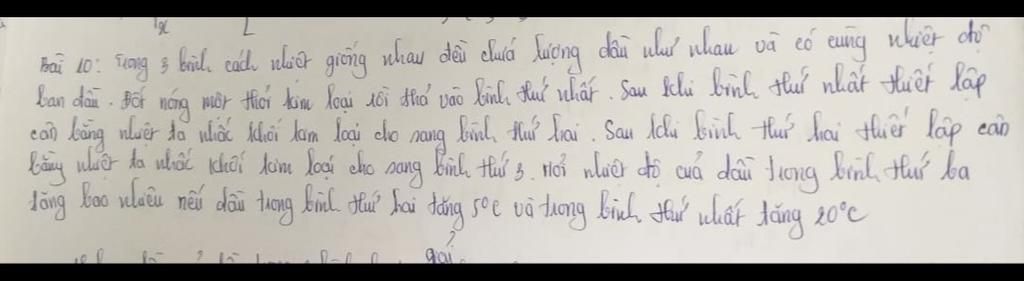 Bài 10: Trong 3 bình cách nhiệt giống nhau đều chứa lượng dầu như nhau và có cùng nhiệt độ
ban đầu. Đốt nóng một thỏi kim loại rồi thả vào bình thứ nhất. Sau khi bình thứ nhất thiết lập
cân bằng nhiệt ta nhấc khối kim loại cho sang bình thứ hai. Sau khi bình thứ hai thiết lập cân
bằng nhiệt ta nhấc khối kim loại cho sang bình thứ 3. Hỏi nhiệt độ của dầu trong bình thứ ba
tăng bao nhiêu nếu dầu trong bình thứ hai tăng 5°C và trong bình thứ nhất tăng 20°C